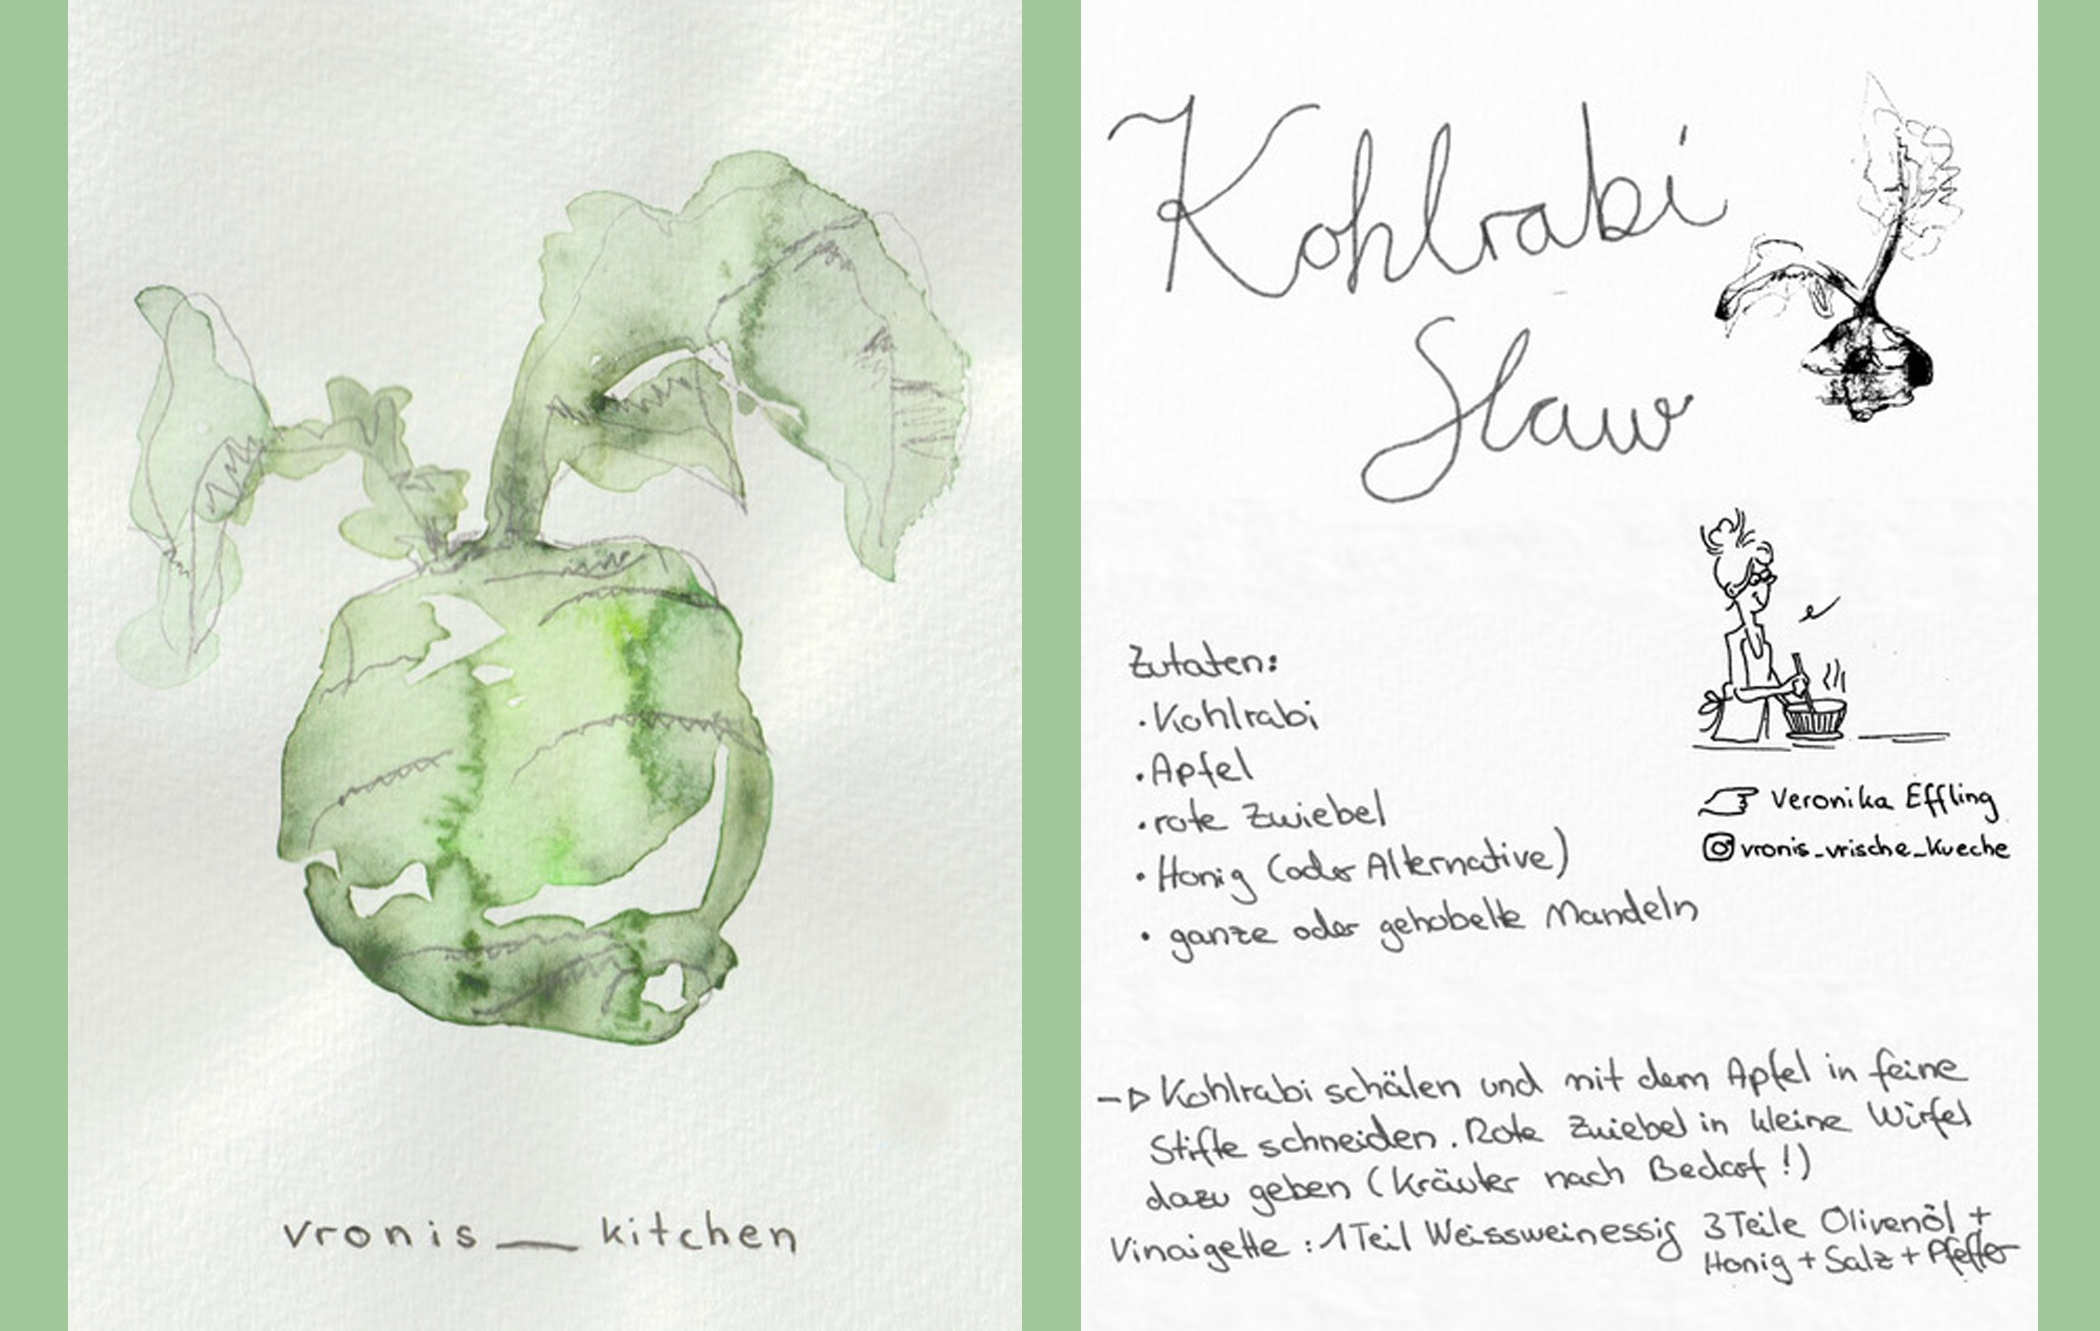 vronis__kitchen
Kohlrabi
Slaw
Zutaten:
• Kohlrabi
• Apfel
• rote Zwiebel
• Honig (oder Alternative)
• ganze oder gehobelte Mandeln
Veronika Effling
vronis_vrische_kueche
→ Kohlrabi schälen und mit dem Apfel in feine
Stifte schneiden. Rote Zwiebel in kleine Würfel
dazu geben (Kräuter nach Bedarf!)
Vinaigette: 1 Teil Weissweinessig 3 Teile Olivenöl +
Honig + Salz + Pfeffer